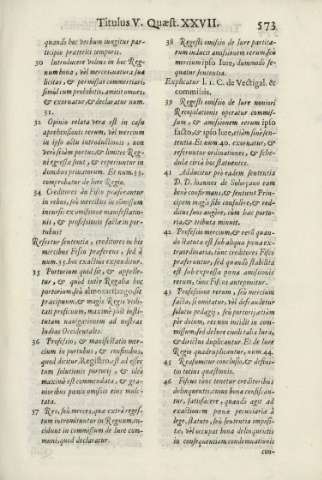 Titulus V. Quæst. XXVII. 573
quando hoc verbum iungitur par-
ticipio præteriti temporis.
30 Introducere vilius in hoc Reg-
num bona, vel merces natura sua
licitas, & permissas commerciari,
simul cum prohibitis, amittimus ei,
& exornatur, & declaratur num.
31.
32 Opinio relata vera est in casu
aprehensionis rerum, vel mercium
in ipso actu introductionis, non
verò si iam portus, & limites Reg-
ni egressa sunt, & reperiuntur in
domibus privatorum. Et num. 33.
comprobatur de iure Regio.
34 Creditores do Fisco præferantur
in rebus, seù mercibus in cõmissum
incursis ex omissione manifestatio-
nis, & professionis factæ in por-
tubus
Resertur sententia, creditores in his
mercibus Fisco præferens, sed à
num. 35. huc exaltur expenditur.
35 Portorium quid sit, & appelle-
tur, & quid inter Regalia hoc
portorium, seù almoxarifazgo sit
præcipuum, & magis Regis vtili-
tati proficuum, maximè post insti-
tutam navigationem ad nostras
Indias Occidentales.
36 Professio, & manifestatio mer-
cium in portubus, & confinibus,
quod dicitur Registro. est ad effec-
tum solutionis portorij, & ideò
maximè est commodata, & gra-
vioribus pœnis omissio eius mulc-
tata.
37 Res, seù merces, quæ extra regis-
tum intromittuntur in Regnum, in-
cidunt in commissum de iure com-
muni, quod declaratur.
38 Registri omissio de iure partita-
rum inducit amissionem rerum seù
mercium ipso Iure, dummodo se-
quatur sententia.
Explicatur l. 1. C. de Vectigal. &
commissis.
39 Registi omissio de iure noviori
Recopilationis operatur commis-
sum, & amissionem rerum ipso
facto, & ipso iure, etiàm sinè sen-
tentia. Et num 40. exornatur, &
referuntur ordinationes, & sche-
dulæ circà hoc statuentes.
41 Adducitur pro eadem sententia
D. D. Ioannes de Solorçano eam
benè confirmans, & sentiens Prin-
cipem magis sibi consulere, & red-
ditus suos augere, cùm hæc porto-
ria, & tributa minuit.
42 Professio mercium, & rerũ quan-
do statuta est sub aliqua pœna ex-
traordinaria, tùnc creditores Fisco
præferuntur, sed quando stabilita
est sub expressa pœna amissionis
rerum, tùnc Fiscus anteponitur.
43 Professione rerum, seù mercium
facta, si omittatur, vel defraudetur
solutio pedagij, seù portorij, etiàm
per dolum, res non incidit in com-
missum, sed debet exolvi talia Iura,
& delictùm duplicantur. Et de Iure
Regis quadruplicantur, num. 44.
45 Resumitur conclusio, & defini-
tio totius quæstionis.
46 Fiscus tùnc tenetur creditoribus
delinquentis, cuius bona confiscan-
tur, satisfacere, quando agit ad
exactionem pœnæ pecuniariæ à
lege, statuto, seù sententia imposi-
tæ, vel occupat bona delinquentis
in consequentiam condemnationis
con-